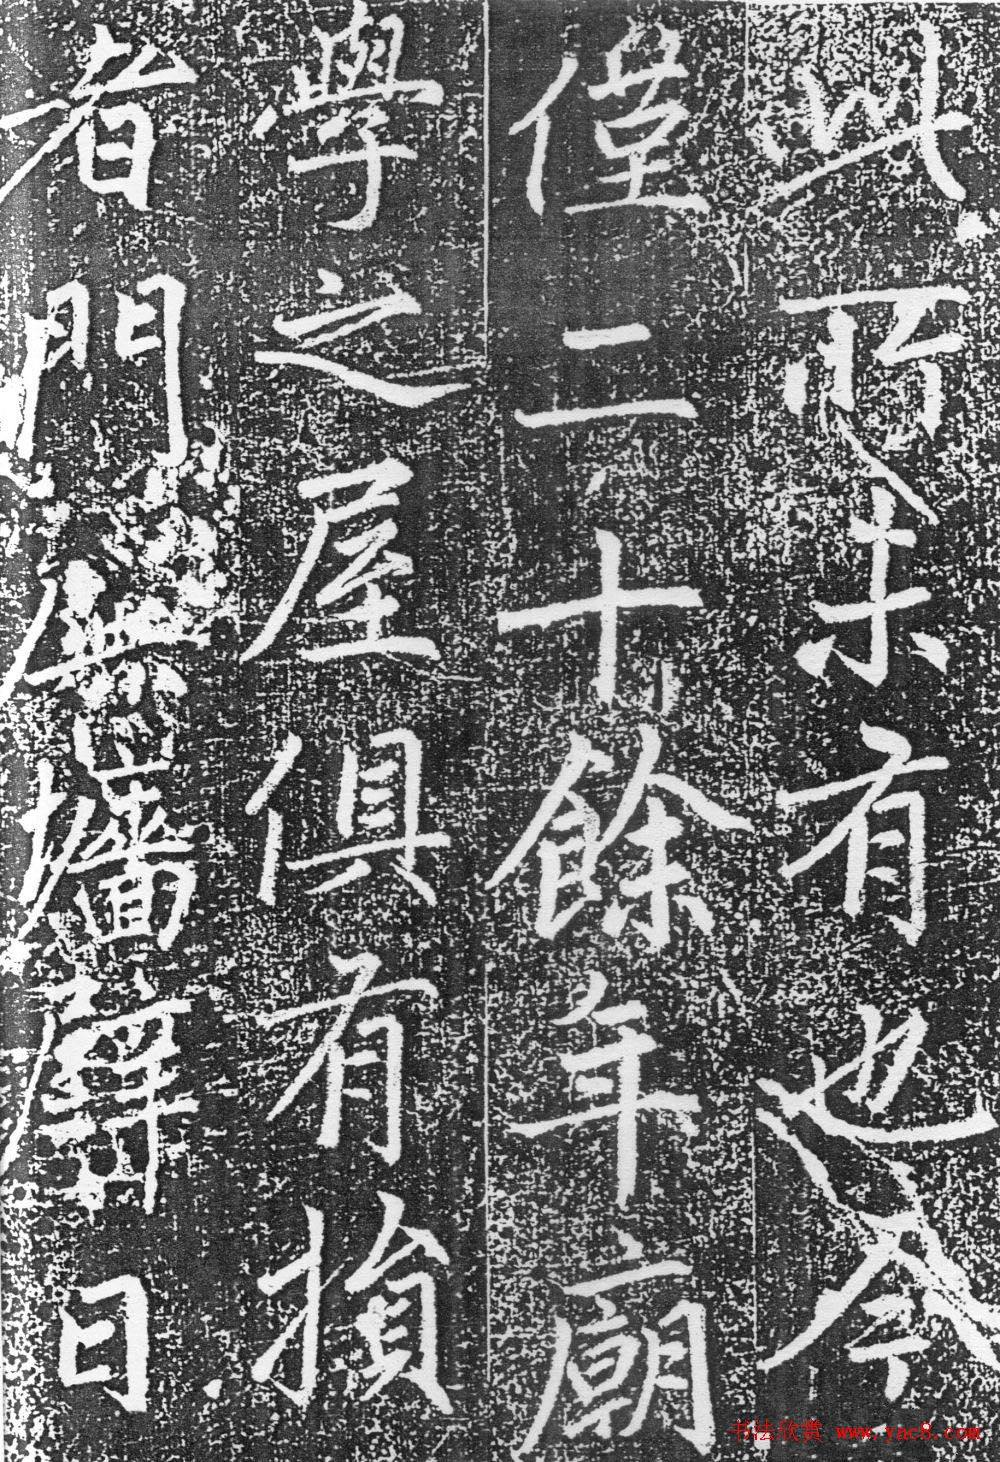 此所未有也今
僅二十餘年廟
學之屋俱有損
者門廡墻壁日
书法欣赏 www.yac8.com